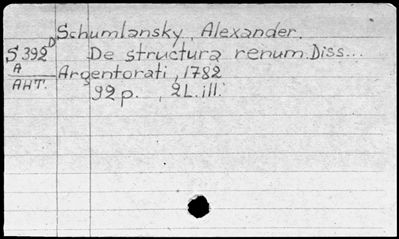 Schumlansky, Alexander.
S 392 D De structura renum. Diss...
A Argentorati, 1782
АНТ. 92 p., 2 L. ill.